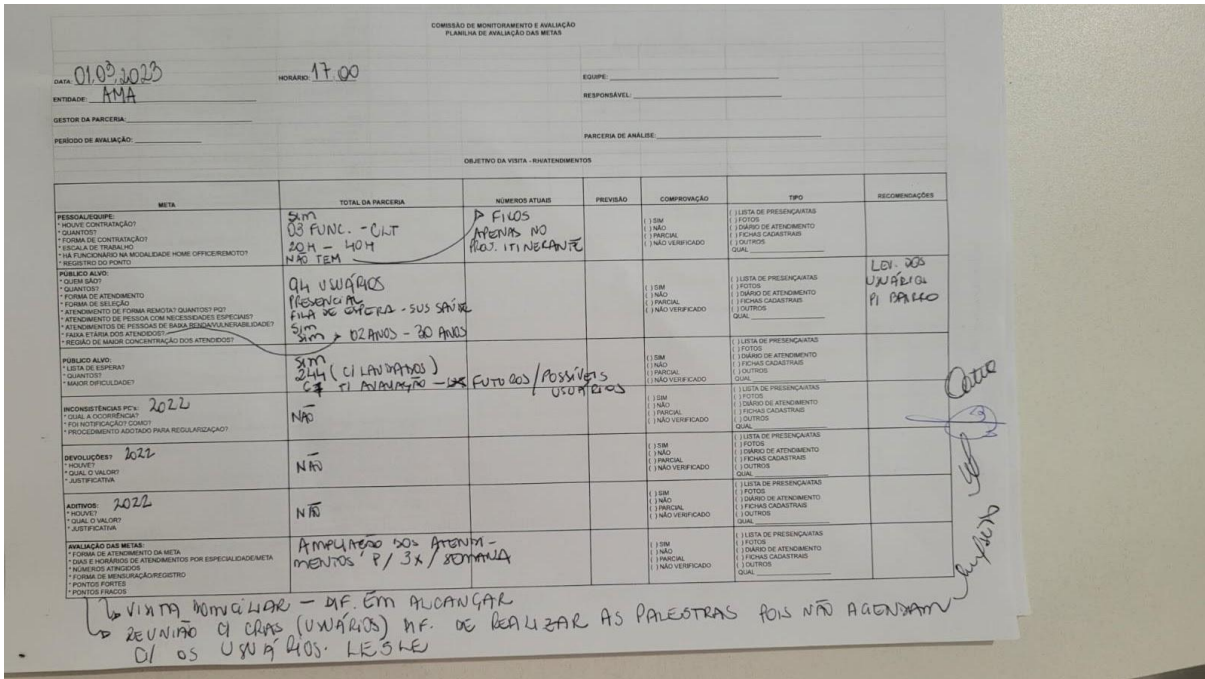 COMISSÃO DE MONITORAMENTO E AVALIAÇÃO
PLANILHA DE AVALIAÇÃO DAS METAS
DATA: 01.03.2023 HORÁRIO: 17.00 EQUIPE:
ENTIDADE: AMA RESPONSÁVEL:
GESTOR DA PARCERIA:
PERÍODO DE AVALIAÇÃO: PARCERIA DE ANÁLISE:
OBJETIVO DA VISITA - RH/ATENDIMENTOS
META TOTAL DA PARCERIA NÚMEROS ATUAIS PREVISÃO COMPROVAÇÃO TIPO RECOMENDAÇÕES
PESSOAL/EQUIPE:
* HOUVE CONTRATAÇÃO?
* QUANTOS?
* FORMA DE CONTRATAÇÃO?
* ESCALA DE TRABALHO
* HÁ FUNCIONÁRIO NA MODALIDADE HOME OFFICE/REMOTO?
* REGISTRO DO PONTO
SIM
03 FUNC. - CLT
20H - 40H
NÃO TEM
APENAS NO
PROJ. ITINERANTE
( ) SIM
( ) NÃO
( ) PARCIAL
( ) NÃO VERIFICADO
( ) LISTA DE PRESENÇA/ATAS
( ) FOTOS
( ) DIÁRIO DE ATENDIMENTO
( ) FICHAS CADASTRAIS
( ) OUTROS
QUAL
PÚBLICO ALVO:
* QUEM SÃO?
* QUANTOS?
* FORMA DE ATENDIMENTO
* FORMA DE SELEÇÃO
* ATENDIMENTO DE FORMA REMOTA? QUANTOS? PQ?
* ATENDIMENTO DE PESSOA COM NECESSIDADES ESPECIAIS?
* ATENDIMENTOS DE PESSOAS DE BAIXA RENDA/VULNERABILIDADE?
* FAIXA ETÁRIA DOS ATENDIDOS?
* REGIÃO DE MAIOR CONCENTRAÇÃO DOS ATENDIDOS?
94 USUÁRIOS
PRESENCIAL
FILA DE ESPERA - SUS SAÚDE
SIM
SIM 02 ANOS - 30 ANOS
( ) SIM
( ) NÃO
( ) PARCIAL
( ) NÃO VERIFICADO
( ) LISTA DE PRESENÇA/ATAS
( ) FOTOS
( ) DIÁRIO DE ATENDIMENTO
( ) FICHAS CADASTRAIS
( ) OUTROS
QUAL
LEV. DOS
USUÁRIOS
P/ BAIRRO
PÚBLICO ALVO:
* LISTA DE ESPERA?
* QUANTOS?
* MAIOR DIFICULDADE?
SIM
244 (C/ LAUDADOS)
AVALIAÇÃO - FUTUROS/POSSÍVEIS
USUÁRIOS
( ) SIM
( ) NÃO
( ) PARCIAL
( ) NÃO VERIFICADO
( ) LISTA DE PRESENÇA/ATAS
( ) FOTOS
( ) DIÁRIO DE ATENDIMENTO
( ) FICHAS CADASTRAIS
( ) OUTROS
QUAL
INCONSISTÊNCIAS PC's: 2022
* QUAL A OCORRÊNCIA?
* FOI NOTIFICAÇÃO? COMO?
* PROCEDIMENTO ADOTADO PARA REGULARIZAÇÃO?
NÃO
( ) SIM
( ) NÃO
( ) PARCIAL
( ) NÃO VERIFICADO
( ) LISTA DE PRESENÇA/ATAS
( ) FOTOS
( ) DIÁRIO DE ATENDIMENTO
( ) FICHAS CADASTRAIS
( ) OUTROS
QUAL
DEVOLUÇÕES? 2022
* HOUVE?
* QUAL O VALOR?
* JUSTIFICATIVA
NÃO
( ) SIM
( ) NÃO
( ) PARCIAL
( ) NÃO VERIFICADO
( ) LISTA DE PRESENÇA/ATAS
( ) FOTOS
( ) DIÁRIO DE ATENDIMENTO
( ) FICHAS CADASTRAIS
( ) OUTROS
QUAL
ADITIVOS: 2022
* HOUVE?
* QUAL O VALOR?
* JUSTIFICATIVA
NÃO
( ) SIM
( ) NÃO
( ) PARCIAL
( ) NÃO VERIFICADO
( ) LISTA DE PRESENÇA/ATAS
( ) FOTOS
( ) DIÁRIO DE ATENDIMENTO
( ) FICHAS CADASTRAIS
( ) OUTROS
QUAL
AVALIAÇÃO DAS METAS:
* FORMA DE ATENDIMENTO DA META
* DIAS E HORÁRIOS DE ATENDIMENTOS POR ESPECIALIDADE/META
* NÚMEROS ATINGIDOS
* FORMA DE MENSURAÇÃO/REGISTRO
* PONTOS FORTES
* PONTOS FRACOS
AMPLIAÇÃO DOS ATENDI-
MENTOS P/ 3X/SEMANA
( ) SIM
( ) NÃO
( ) PARCIAL
( ) NÃO VERIFICADO
( ) LISTA DE PRESENÇA/ATAS
( ) FOTOS
( ) DIÁRIO DE ATENDIMENTO
( ) FICHAS CADASTRAIS
( ) OUTROS
QUAL
VISITA DOMICILIAR - DIF. EM ALCANÇAR
REUNIÃO C/ CRAS (USUÁRIOS) DIF. DE REALIZAR AS PALESTRAS POIS NÃO AGENDAM
C/ OS USUÁRIOS. LESLE